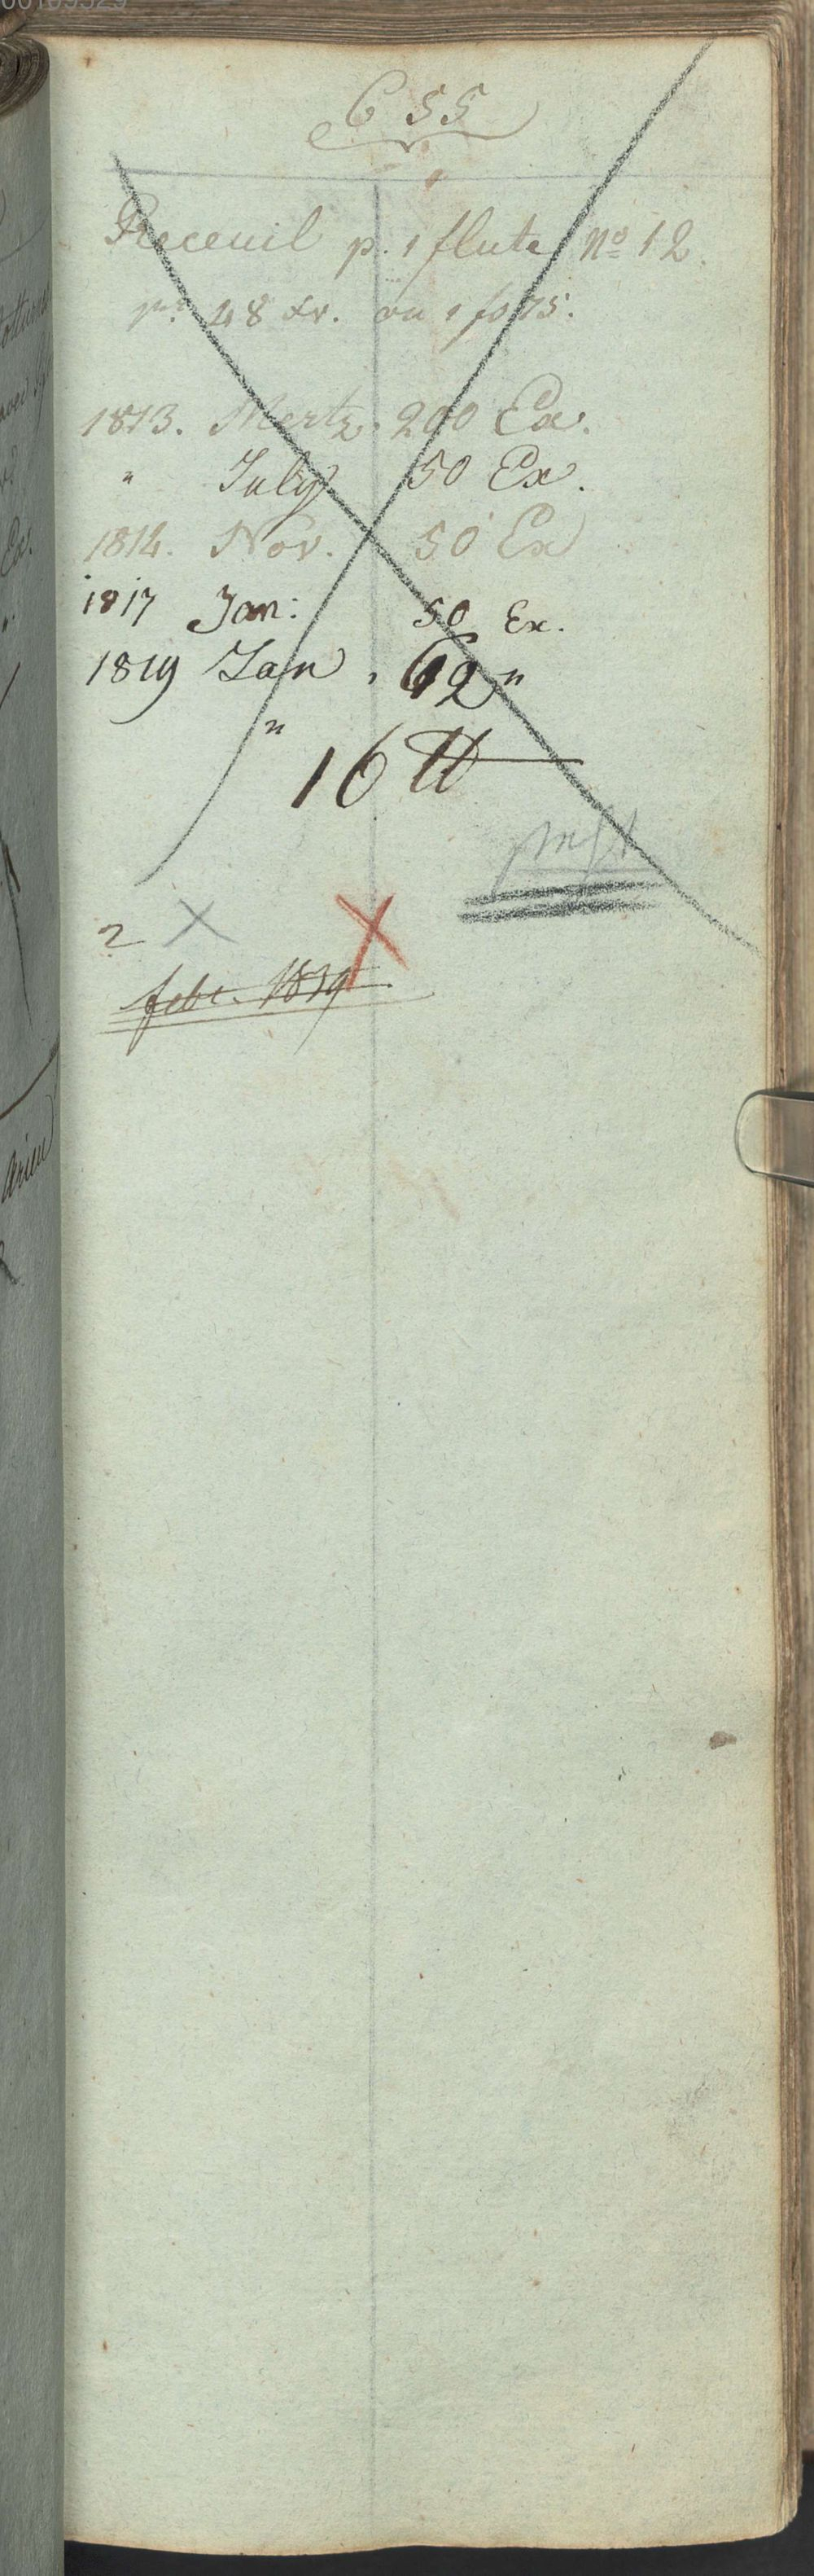 655
Receuil p. 1 flute No 12.
pr. 48 xr. ou 1 fs 75.
1813. Mertz. 200 Ex.
" July 50 Ex.
1814. Nov. 50 Ex
1817 Jan: 50 Ex.
1819 Jan. 62 "
" 16 ℔
2 X X
febr. 1839